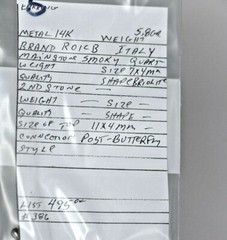 METAL 14K WEIGHT 5.8GR
BRAND ROICB ITALY
MAIN STONE SMOKY QUART
WEIGHT SIZE 7X4MM
QUALITY SHAPE BRIOLITE
2ND STONE —
WEIGHT — SIZE —
QUALITY — SHAPE —
SIZE OF TOP 11X4MM —
CONNECTOR POST-BUTTERFLY
STYLE
LIST 495⁰⁰
#386